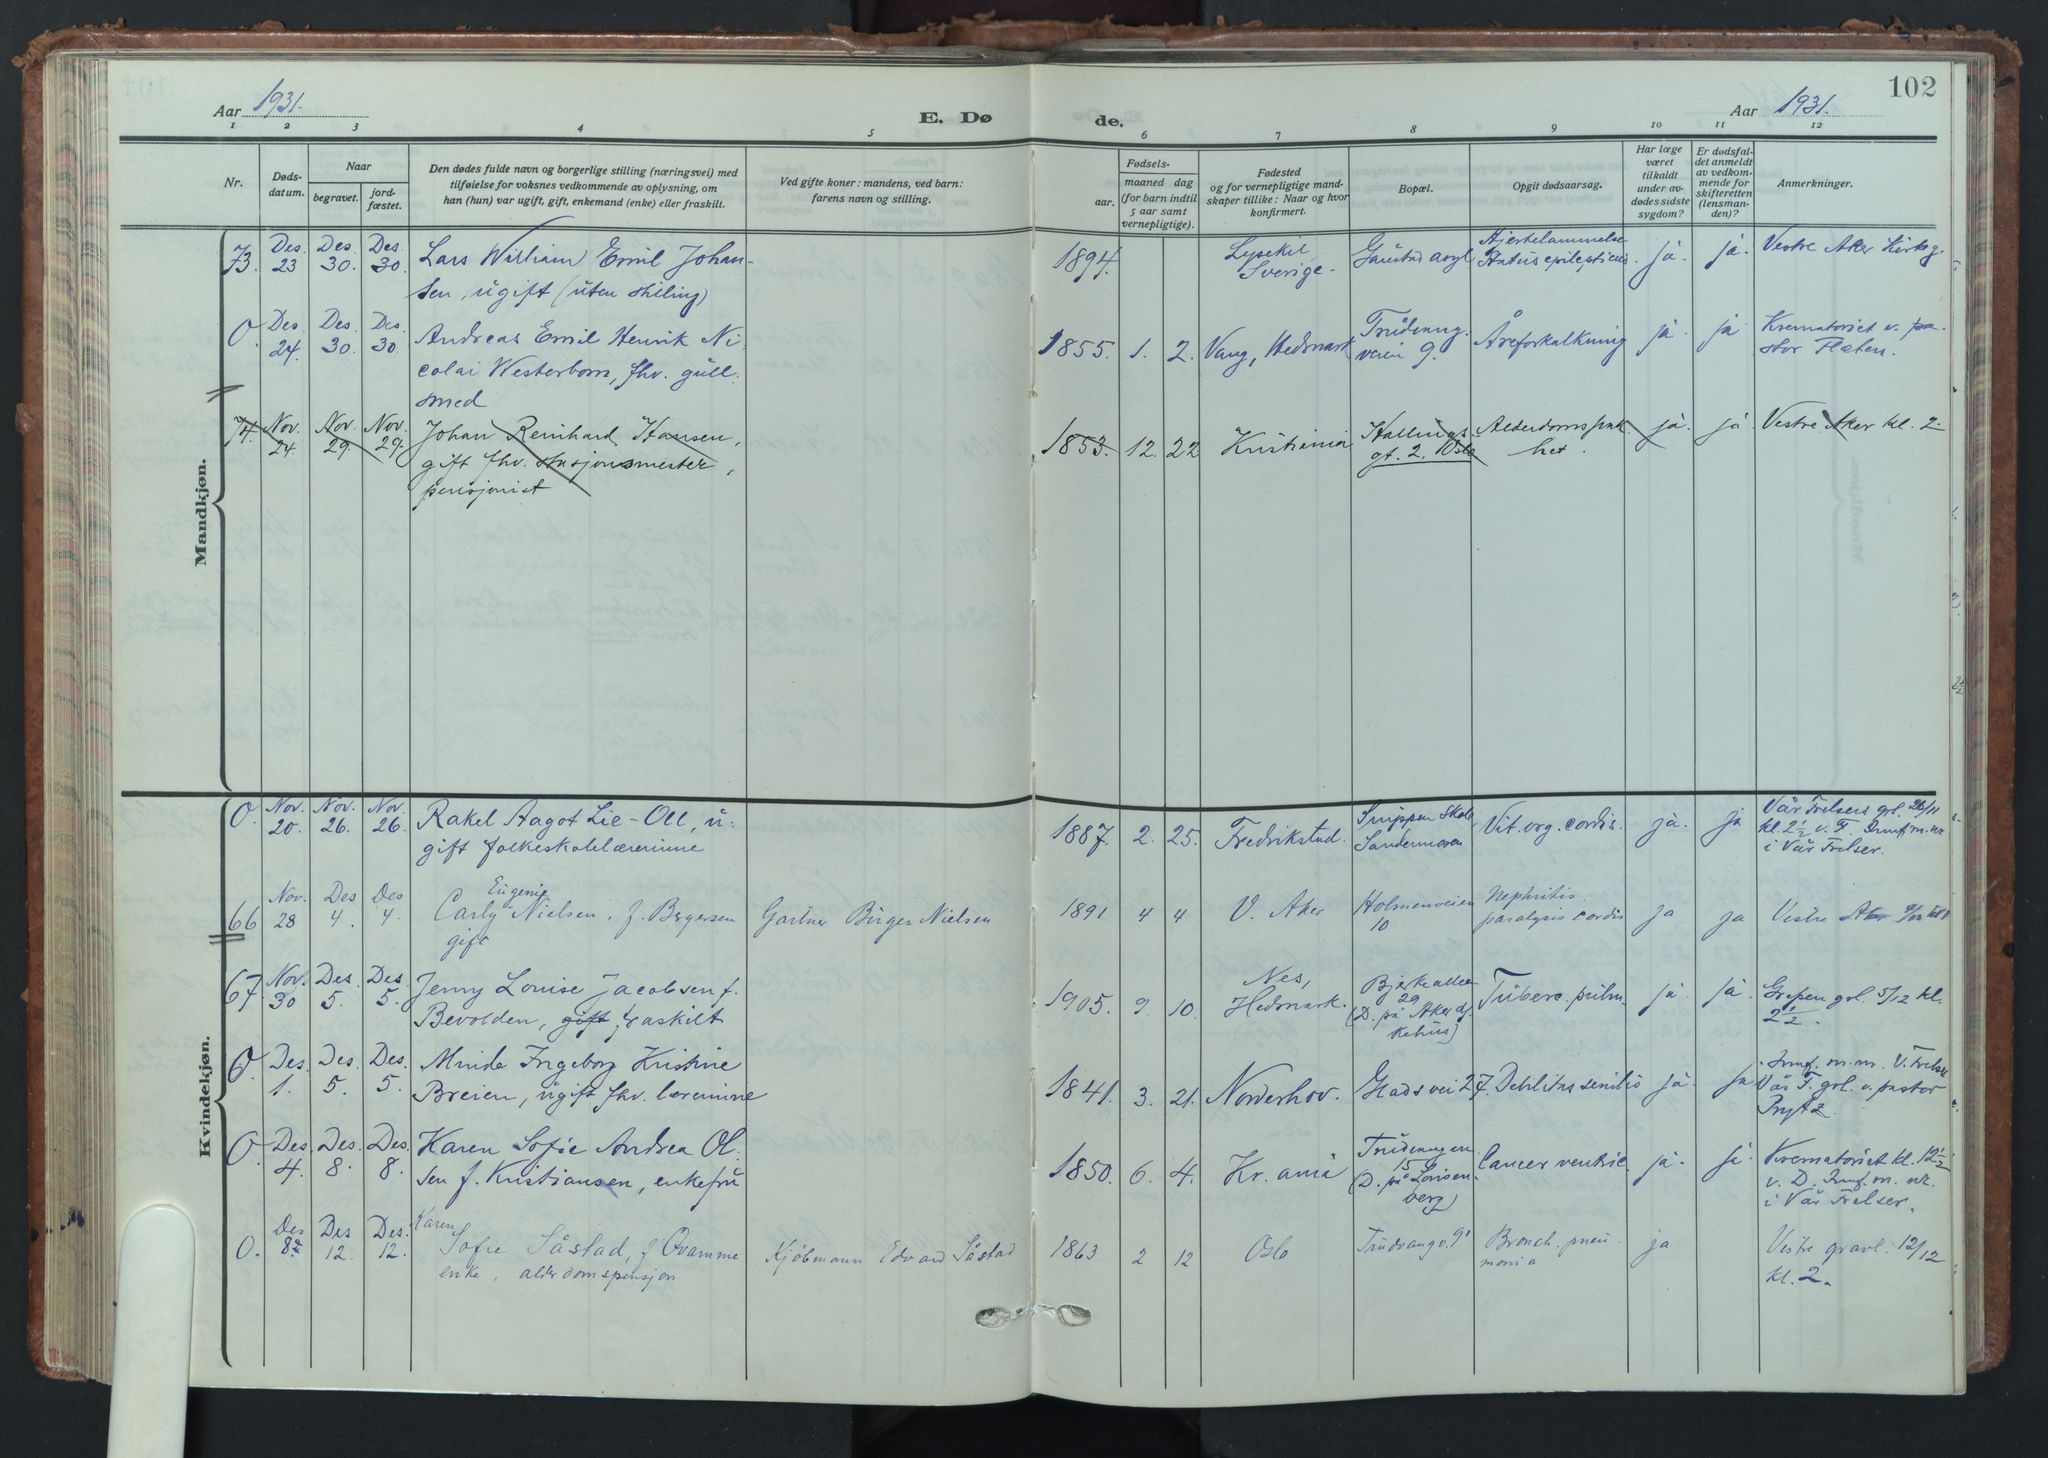 102
Aar 1931.
E. Dø de.
Aar 1931.
1 2 3 4 5 6 7 8 9 10 11 12
Nr.
Døds-
datum.
Naar
begravet.
jord-
fæstet.
Den dødes fulde navn og borgerlige stilling (næringsvei) med
tilføielse for voksnes vedkommende av oplysning, om
han (hun) var ugift, gift, enkemand (enke) eller fraskilt.
Ved gifte koner: mandens, ved barn:
farens navn og stilling.
Fødsels-
aar.
maaned dag
(for barn indtil
5 aar samt
vernepligtige).
Fødested
og for vernepligtige mand-
skaper tillike: Naar og hvor
konfirmert.
Bopæl.
Opgit dødsaarsag.
Har læge
været
tilkaldt
under av-
dødes sidste
sygdom?
Er dødsfal-
det anmeldt
av vedkom-
mende for
skifteretten
(lensman-
den)?
Anmerkninger.
Mandkjøn.
73. Des. 23 Des. 30. Des. 30. Lars William Emil Johan-
sen, ugift (uten stilling)
1894. Lysekil, Sverige. Gaustad asyl Hjertelammelse Status epilepticus. ja. ja. Vestre Aker kirkeg.
0. Des. 24. Des. 30. Des. 30. Andreas Emil Henrik Ni-
colai Westerbom, fhv. gull-
smed
1855. 1. 2. Vang, Hedmark Trudvang-
veien 9. Åreforkalkning ja. ja Krematoriet v. pa-
stor Fleten.
74. Nov. 24 Nov. 29. Nov. 29. Johan Reinhard Hansen,
gift fhv. stasjonsmester,
pensjonist
1853. 12. 22 Kristiania Hallings-
gt. 2, Oslo Alderdomssvak-
het. ja. ja. Vestre Aker kl. 2.
Kvindekjøn.
0. Nov. 20. Nov. 26. Nov. 26. Rakel Aagot Lie-Oll, u-
gift folkeskolelærerinne
1887. 2. 25. Fredrikstad. Snippen Skole
Sandermosen Vit. org. cordis. ja. ja Vår Frelsers grl. 26/11
kl. 2½ v. F. Innf. m. nr
i Vår Frelser.
66 Nov. 28 Des 4. Des 4. Carly Eugenie Nielsen, f. Børgersen
gift
Gartner Birger Nielsen
1891 4 4 V. Aker Holmenveien
10 Nephritis.
paralysis cordis ja ja Vestre Aker
67 Nov. 30 Des. 5. Des. 5. Jenny Louise Jacobsen f.
Bevolden, gift fraskilt
1905. 9. 10. Nes,
Hedmark. Bjerkealleen
29
(D. på Aker sy-
kehus) Tuberc. pulm. ja. ja. Grefsen grl. 5/12 kl.
2½.
0. Des. 1. Des. 5. Des. 5. Minda Ingeborg Kristine
Breien, ugift fhv. lærerinne
1841. 3. 21. Norderhov. Stads vei 27. Debilitas senilis ja. ja Innf. m. nr. V. Frelser
Vår F. grl. v. pastor
Prytz.
0. Des. 4. Des. 8. Des. 8. Karen Sofie Andrea Ol-
sen f. Kristiansen, enkefru
1850. 6. 4. Kr.ania Trudvangvn
15
(D. på Lovisen-
berg) Cancer ventric. ja. ja. Krematoriet kl. 12½
v. D. Innf. m. nr.
i Vår Frelser.
0. Des 8de Des 12. Des. 12. Karen Sofie Såstad, f. Qvamme
enke, alderdomspensjon
Kjøbmann Edvard Såstad
1863 2 12 Oslo Trudvangv. 9 Bronch. pneu-
monia ja Vestre gravl. 12/12
kl. 2.